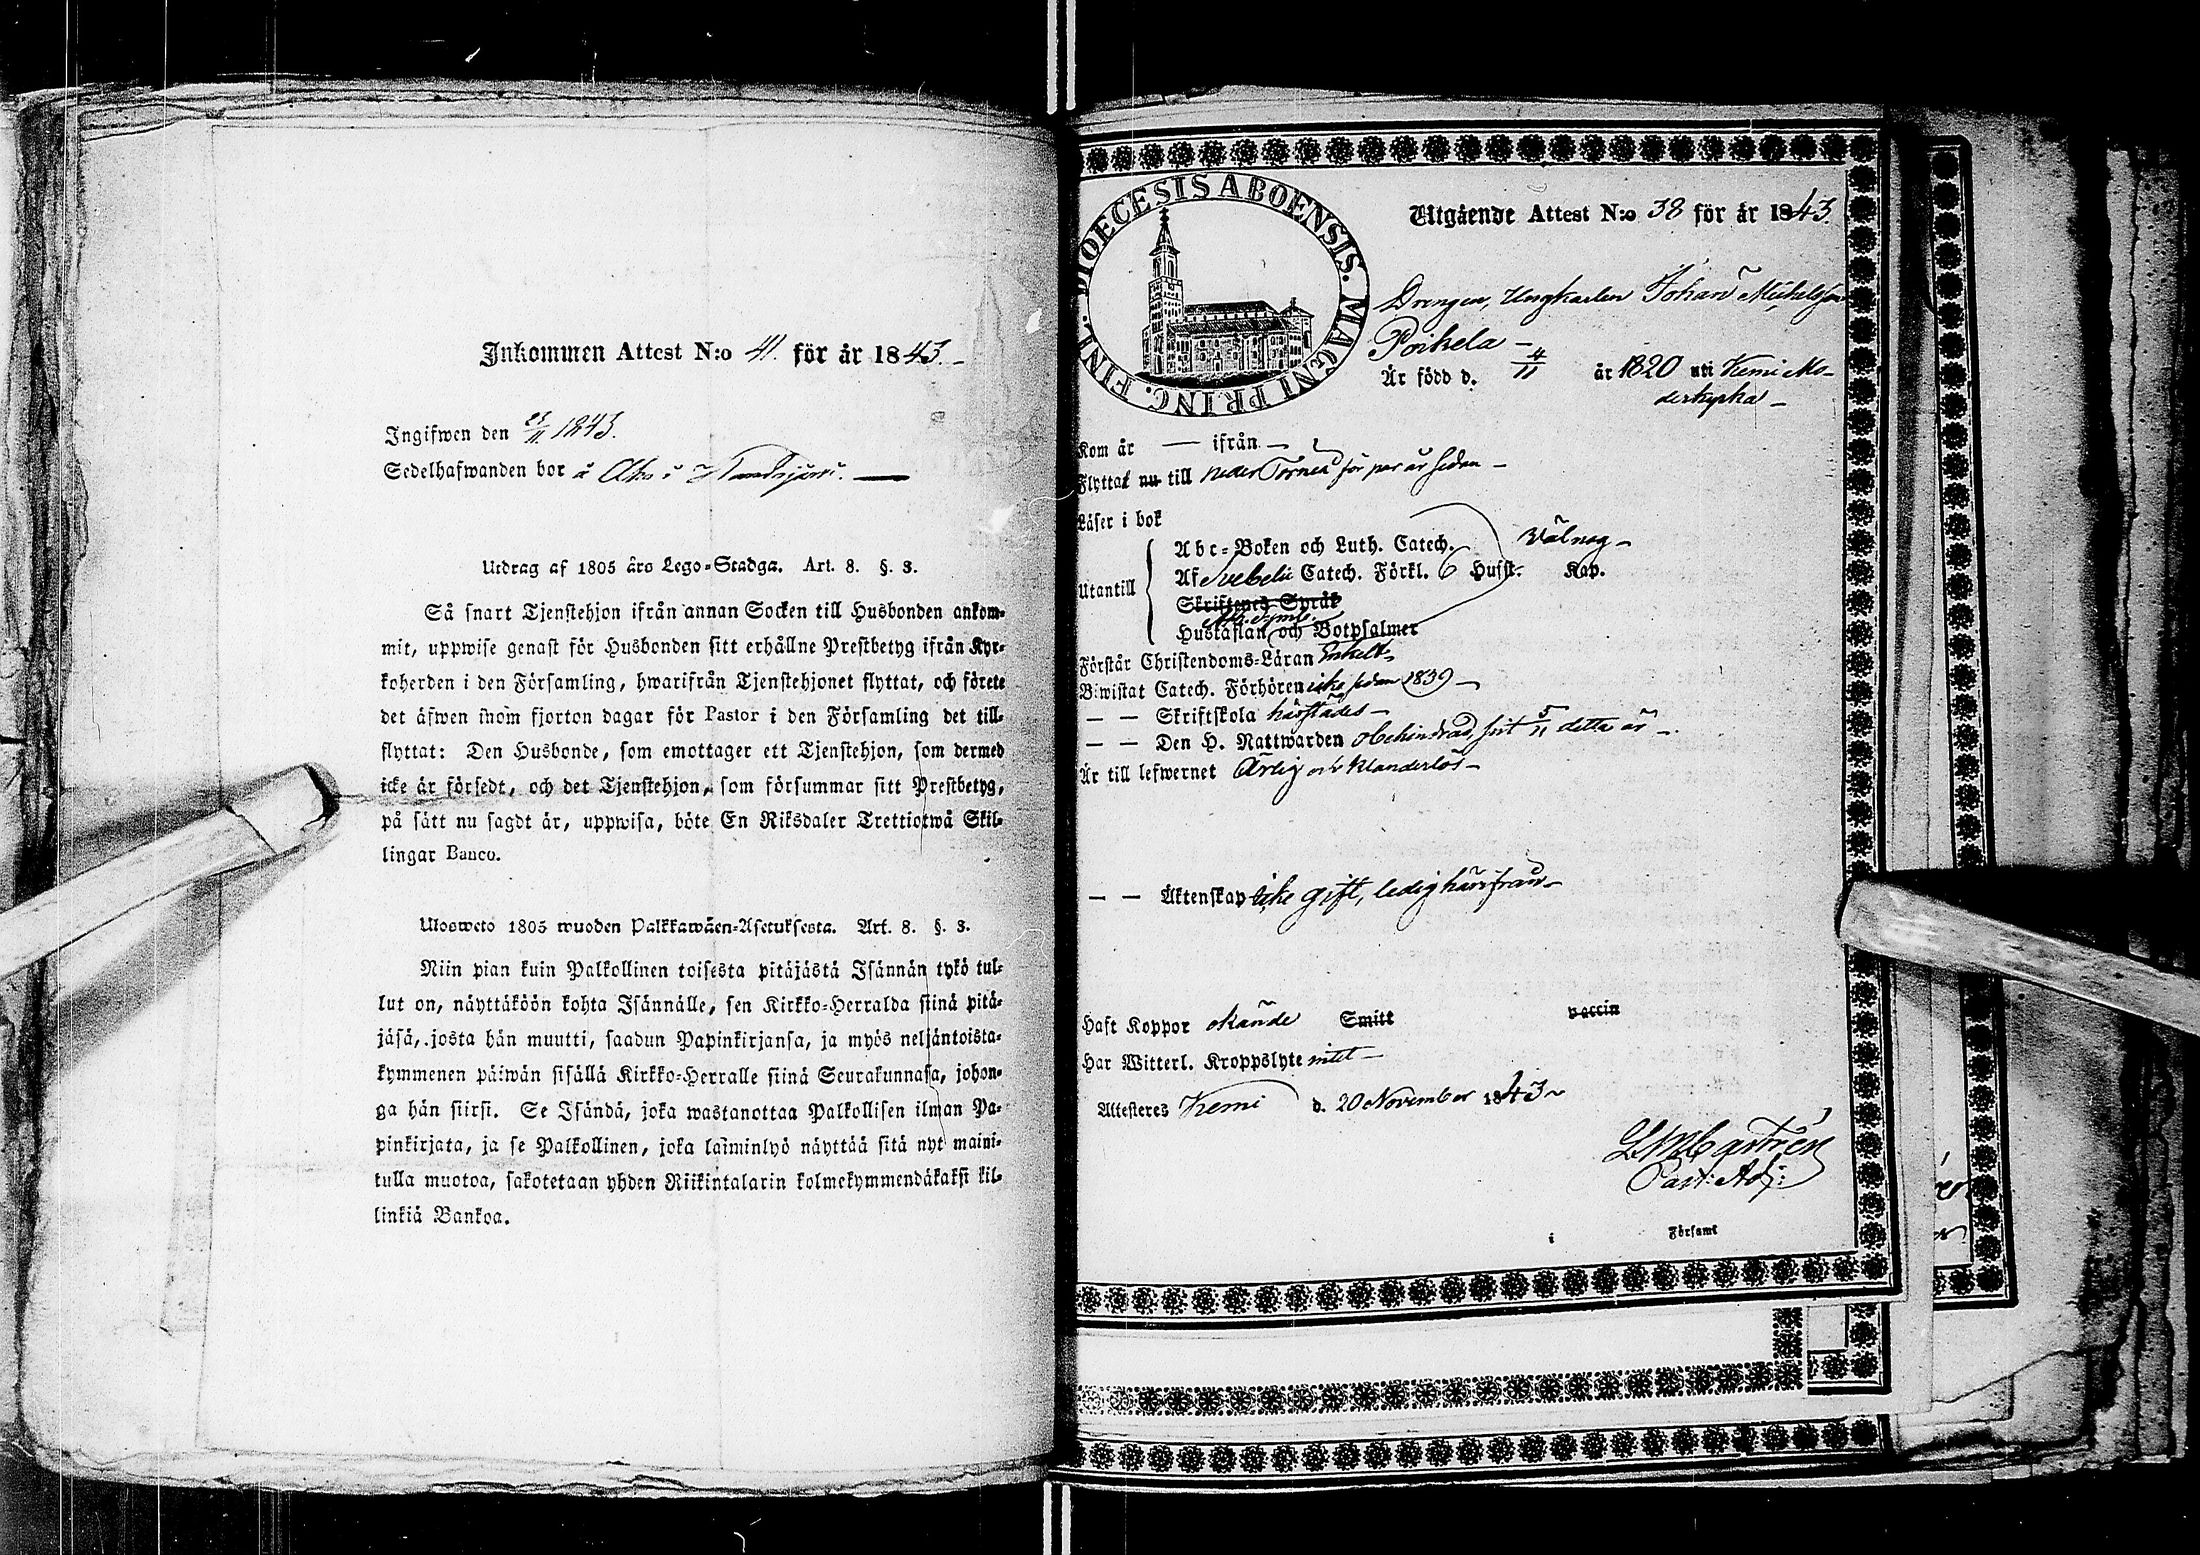 Inkommen Attest N:o 41. för år 1843.
Ingifwen den 1843.
Sedelhafwanden bor å i
Utdrag af 1805 års Lego-Stadga. Art. 8. §. 3.
Så snart Tjenstehjon ifrån annan Socken till Husbonden ankom-
mit, uppwise genast för Husbonden sitt erhållne Prestbetyg ifrån Kyr-
koherden i den Församling, hwarifrån Tjenstehjonet flyttat, och förete
det äfwen inom fjorton dagar för Pastor i den Församling det till-
flyttat: Den Husbonde, som emottager ett Tjenstehjon, som dermed
icke är försedt, och det Tjenstehjon, som försummar sitt Prestbetyg,
på sätt nu sagdt är, uppwisa, böte En Riksdaler Trettiotwå Skil-
lingar Banco.
Ulosweto 1805 wuoden Palkkawäen-Asetuksesta. Art. 8. §. 3.
Niin pian kuin Palkollinen toisesta pitäjästä Isännän tykö tul-
lut on, näyttäköön kohta Isännälle, sen Kirkko-Herralda siinä pitä-
jäsä, josta hän muutti, saadun Papinkirjansa, ja myös neljäntoista-
kymmenen päiwän sisällä Kirkko-Herralle siinä Seurakunnasa, johon-
ga hän siirsi. Se Isändä, joka wastanottaa Palkollisen ilman Pa-
pinkirjata, ja se Palkollinen, joka laiminlyö näyttää sitä nyt maini-
tulla muotoa, sakotetaan yhden Riikintalarin kolmekymmendäkaksi kil-
linkiä Bankoa.
DIOECESIS ABOENSIS. MAGNI PRINC. FINL.
Utgående Attest N:o 38 för år 1843.
Drengen, Ungkarlen Johan Michelsson
Poikela –
Är född d. 4/11 år 1820 uti Kemi Mo-
derkyrka –
Kom år — ifrån –
Flyttat nu till Neder Torneå för par år sedan –
Läser i bok
Abc-Boken och Luth. Catech. Välnog –
Utantill Af Svebelii Catech. Förkl. 6 Husst. Kap.
Skriftenes Språk
Ath. Symb.
Hustaflan och Botpsalmer
Förstår Christendoms-Läran Enkelt
Biwistat Catech. Förhören icke sedan 1839 –
— — Skriftskola härstädes –
— — Den H. Nattwarden obehindrad, sist 5/11 detta år –
Är till lefwernet Ärlig och klanderlös –
— — Äktenskap icke gift, ledig härifrån –
Haft Koppor okände Smitt vaccin
Har Witterl. Kroppslyte intet –
Attesteres Kemi d. 20 November 1843
Castrén
Past: Adj:
i Församl